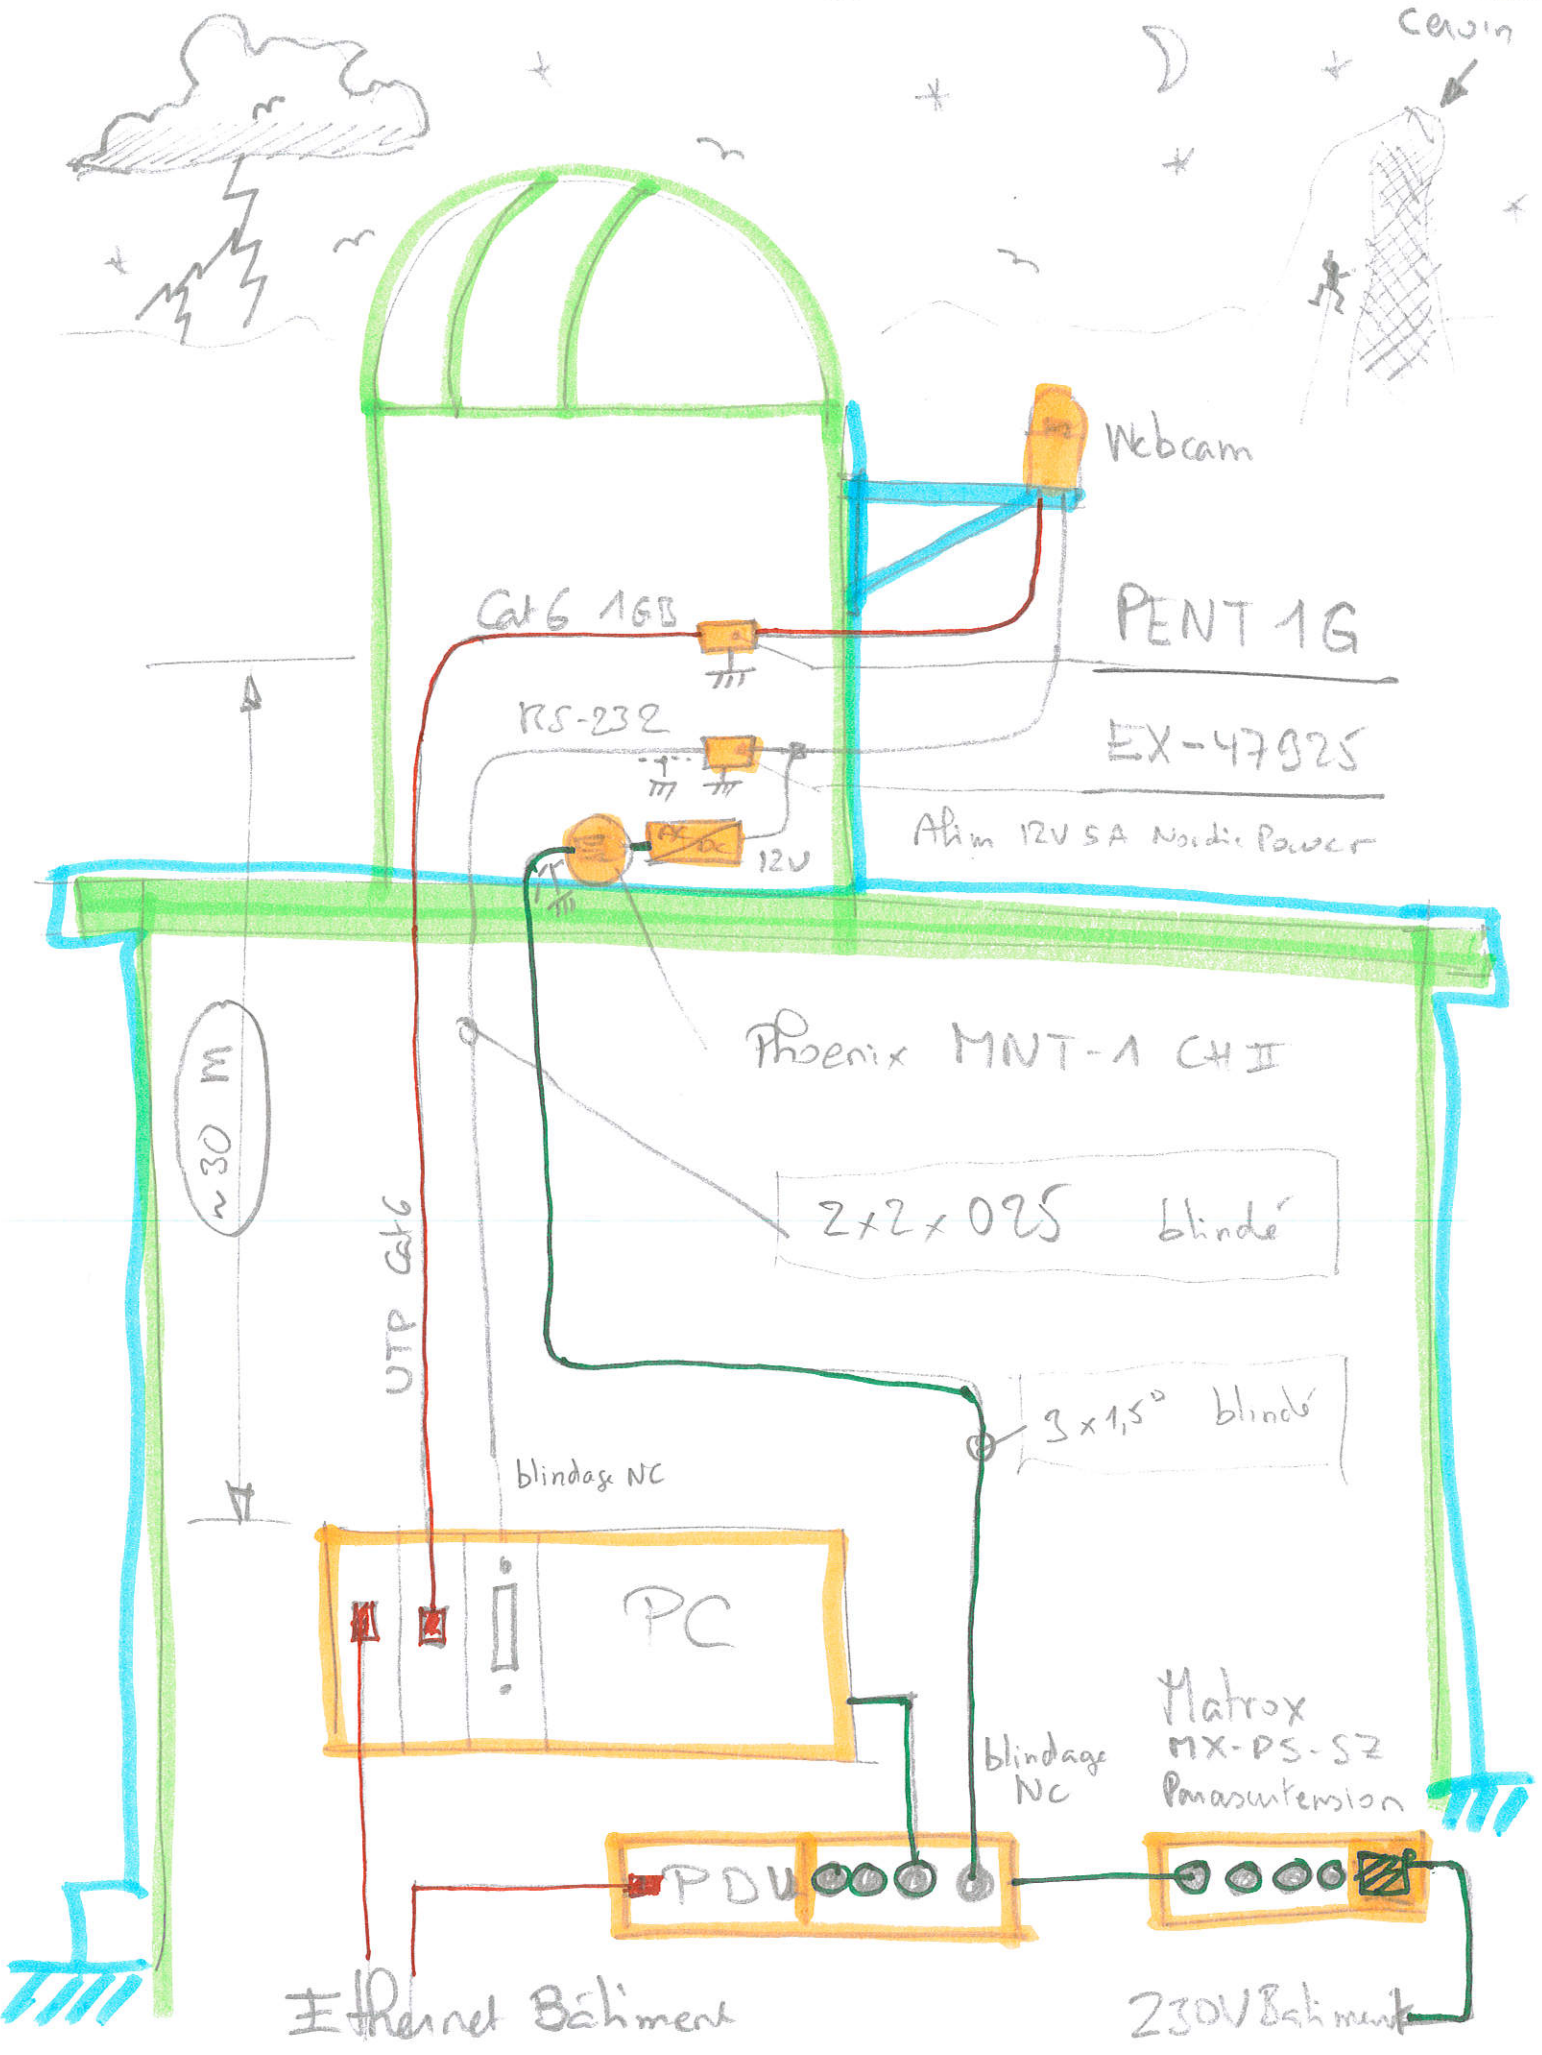 Cervin
Webcam
Cat 6 1GB
PENT 1G
RS-232
EX-47925
AC/DC
12V
Alim 12V 5A Nordic Power
~30 m
Phoenix MNT-1 CH II
2x2x025 blindé
UTP Cat 6
3x1,5° blindé
blindage NC
PC
blindage
NC
Matrox
MX-PS-SZ
Parasurtension
PDU
Ethernet Bâtiment
230V Batiment